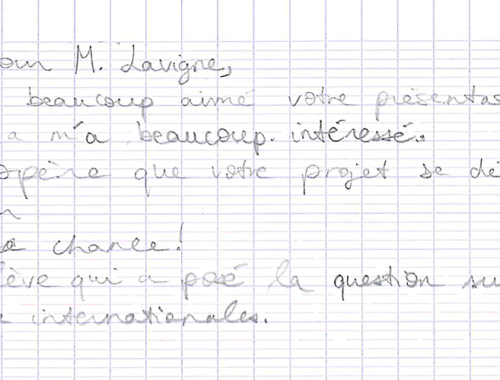 our M. Lavigne,
beaucoup aimé votre présentas
a m'a beaucoup intéressé.
spère que votre projet se dé
n
e chance!
lève qui a posé la question su
e internationales.